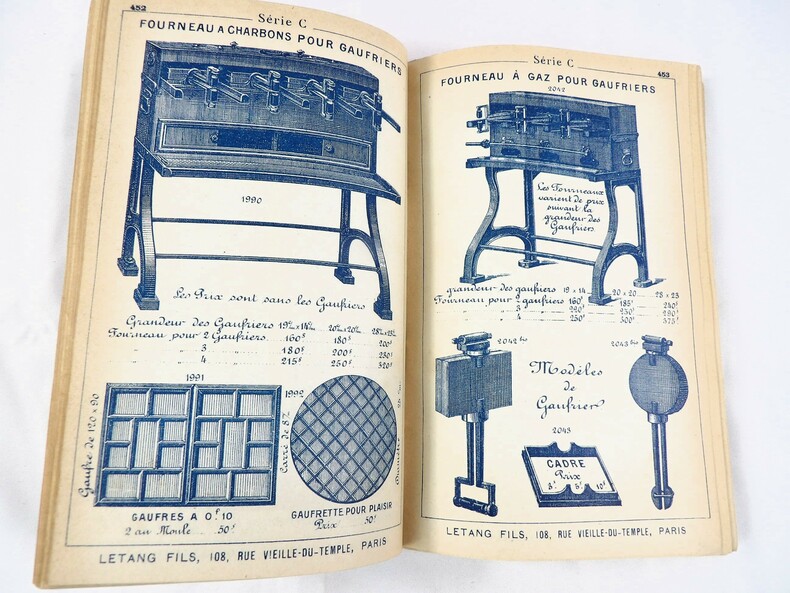 452
Série C
FOURNEAU A CHARBONS POUR GAUFRIERS
1990
Les Prix sont sans les Gaufriers
Grandeur des Gaufriers 19c/m x 14c/m 20c/m x 20c/m 28c/m x 23c/m
Fourneau pour 2 Gaufriers. 160f 180f 200f
" " 3 180f 200f 230f
" " 4 215f 250f 320f
1991
Gaufre de 120 x 90
GAUFRES A 0f 10
2 au Moule ... 50f
1992
Carré de 8
GAUFRETTE POUR PLAISIR
Prix ... 50f
LETANG FILS, 108, RUE VIEILLE-DU-TEMPLE, PARIS
Série C
453
FOURNEAU À GAZ POUR GAUFRIERS
2042
Les Fourneaux
varient de prix
suivant la
grandeur des
Gaufriers
grandeur des gaufriers 19 x 14 ... 20 x 20 ... 28 x 23
Fourneau pour 2 gaufriers 160f 185f 240f
3 220f 230f 290f
4 250f 300f 375f
2042 bis
Modèles
de
Gaufrier
2043 bis
2043
CADRE
Prix
3f 5f 10f
LETANG FILS, 108, RUE VIEILLE-DU-TEMPLE, PARIS